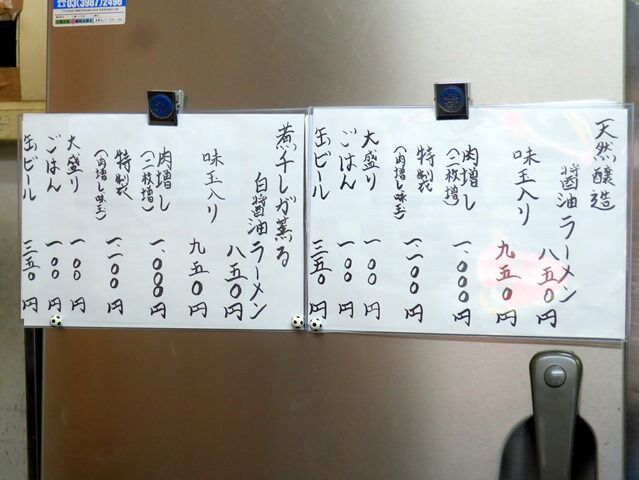 ☎03(3987)2496
天然醸造
醤油ラーメン 八五〇円
味玉入り 九五〇円
肉増し 一、〇〇〇円
(二枚増)
特製 一、一〇〇円
(肉増し味玉)
大盛り 一〇〇円
ごはん 一〇〇円
缶ビール 三五〇円
煮干しが薫る
白醤油ラーメン 八五〇円
味玉入り 九五〇円
肉増し 一、〇〇〇円
(二枚増)
特製 一、一〇〇円
(肉増し味玉)
大盛り 一〇〇円
ごはん 一〇〇円
缶ビール 三五〇円